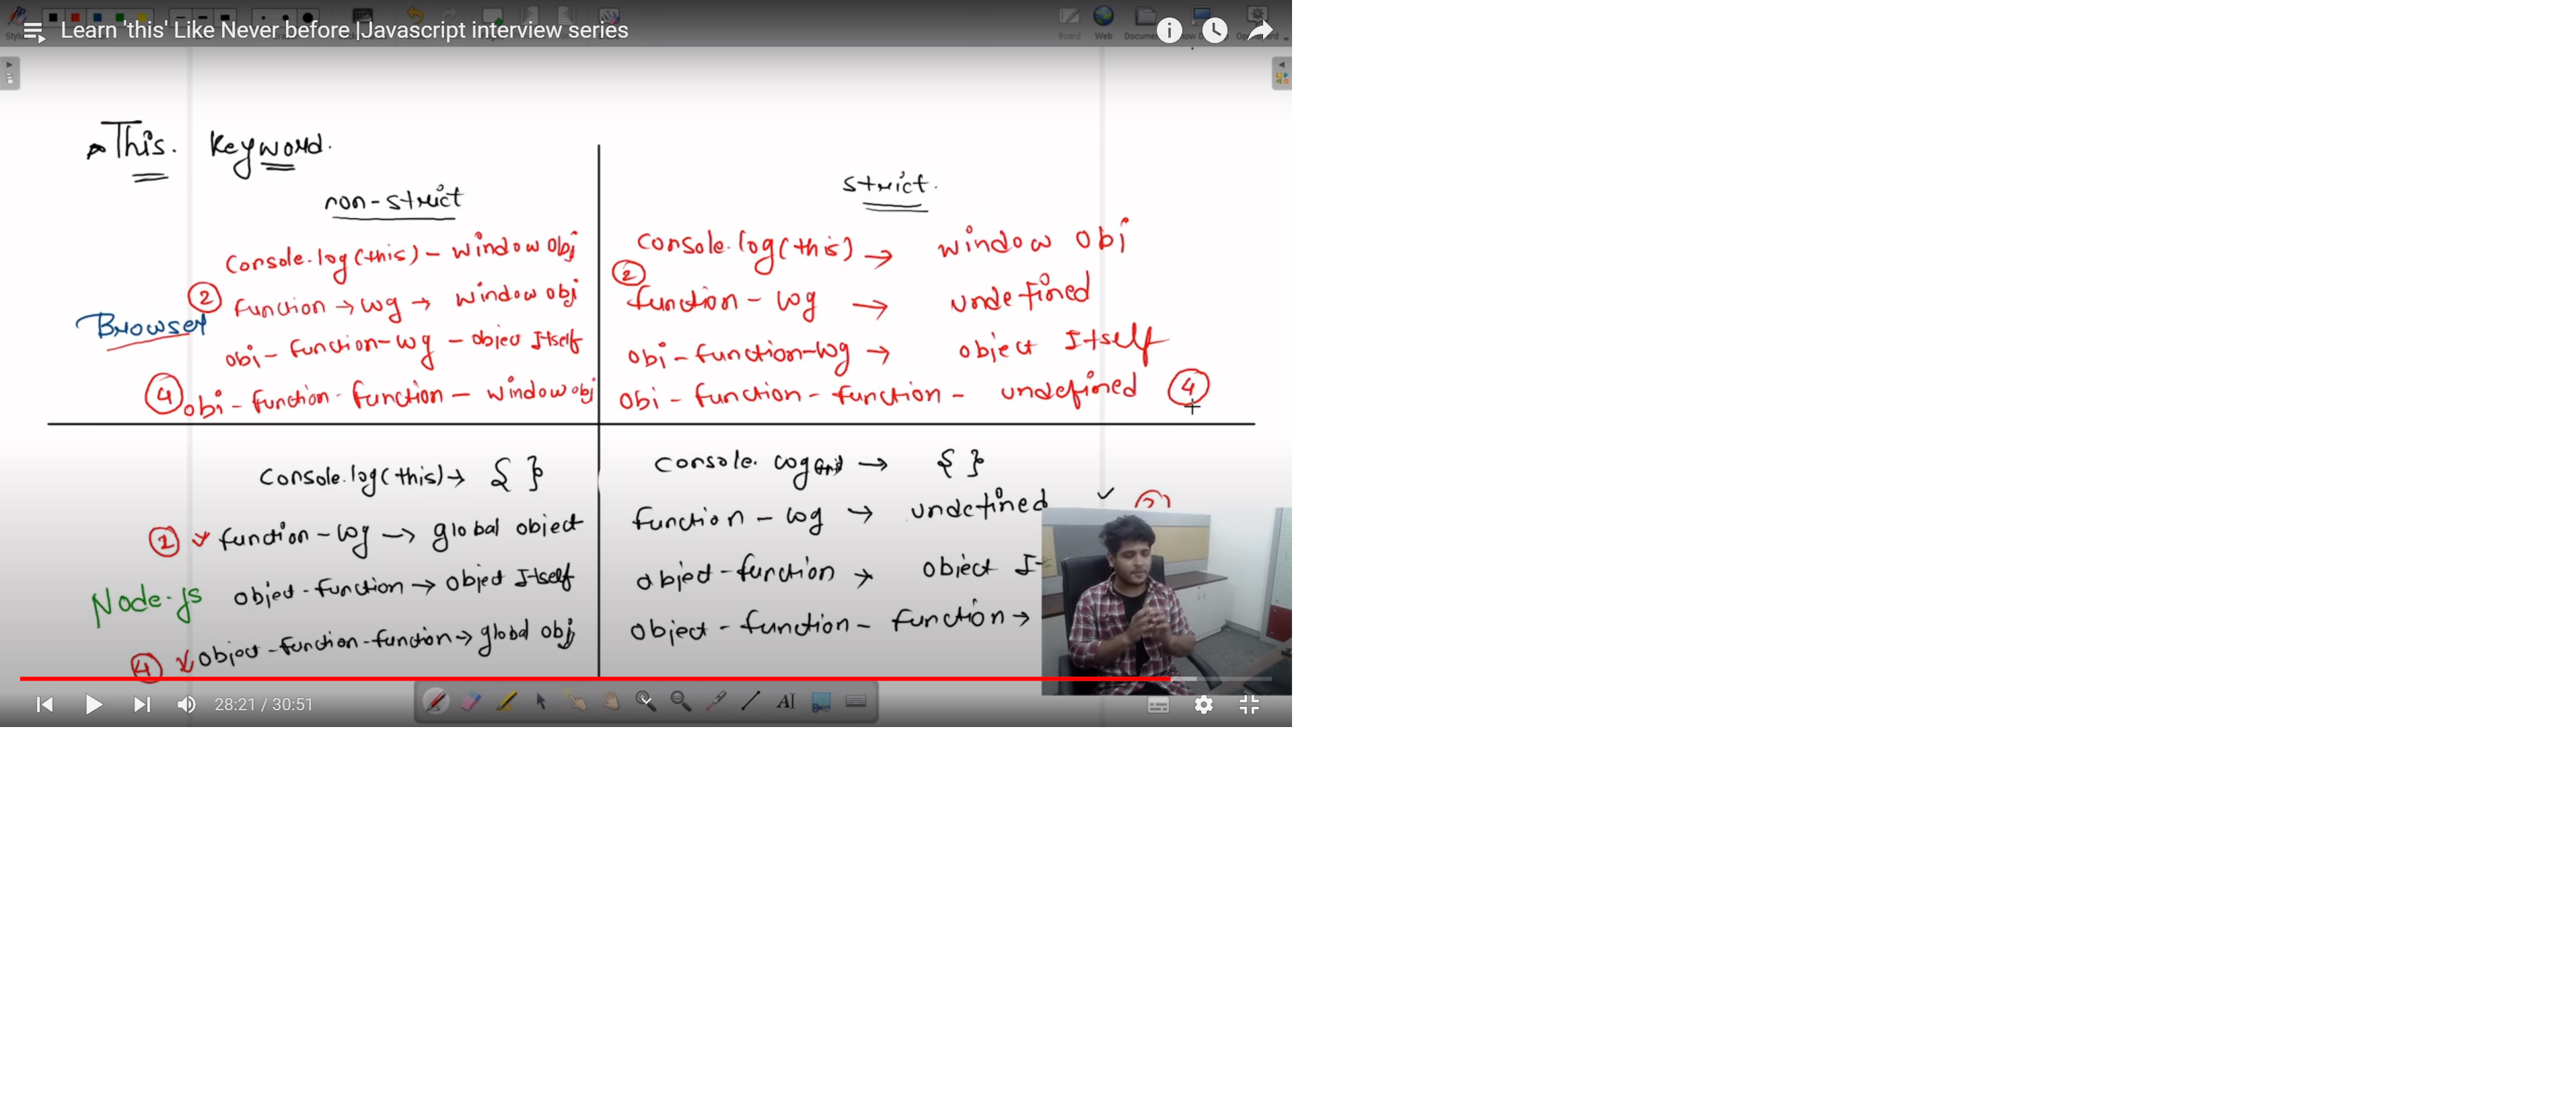 Learn 'this' Like Never before |Javascript interview series
Board Web
This. Keyword.
non-strict
strict.
Console.log(this) - window obj
② function → log → window obj
Browser
obj - function-log - object Itself
④ obj - function - function - window obj
console.log(this) → window obj
②
function - log → undefined
obj - function-log → object Itself
obj - function - function - undefined ④
Console.log(this) → { }
② function - log → global object
Node-js object - function → object Itself
④ object - function-function → global obj
console. log → { }
function - log → undefined
object - function → object
object - function - function →
28:21 / 30:51
AI